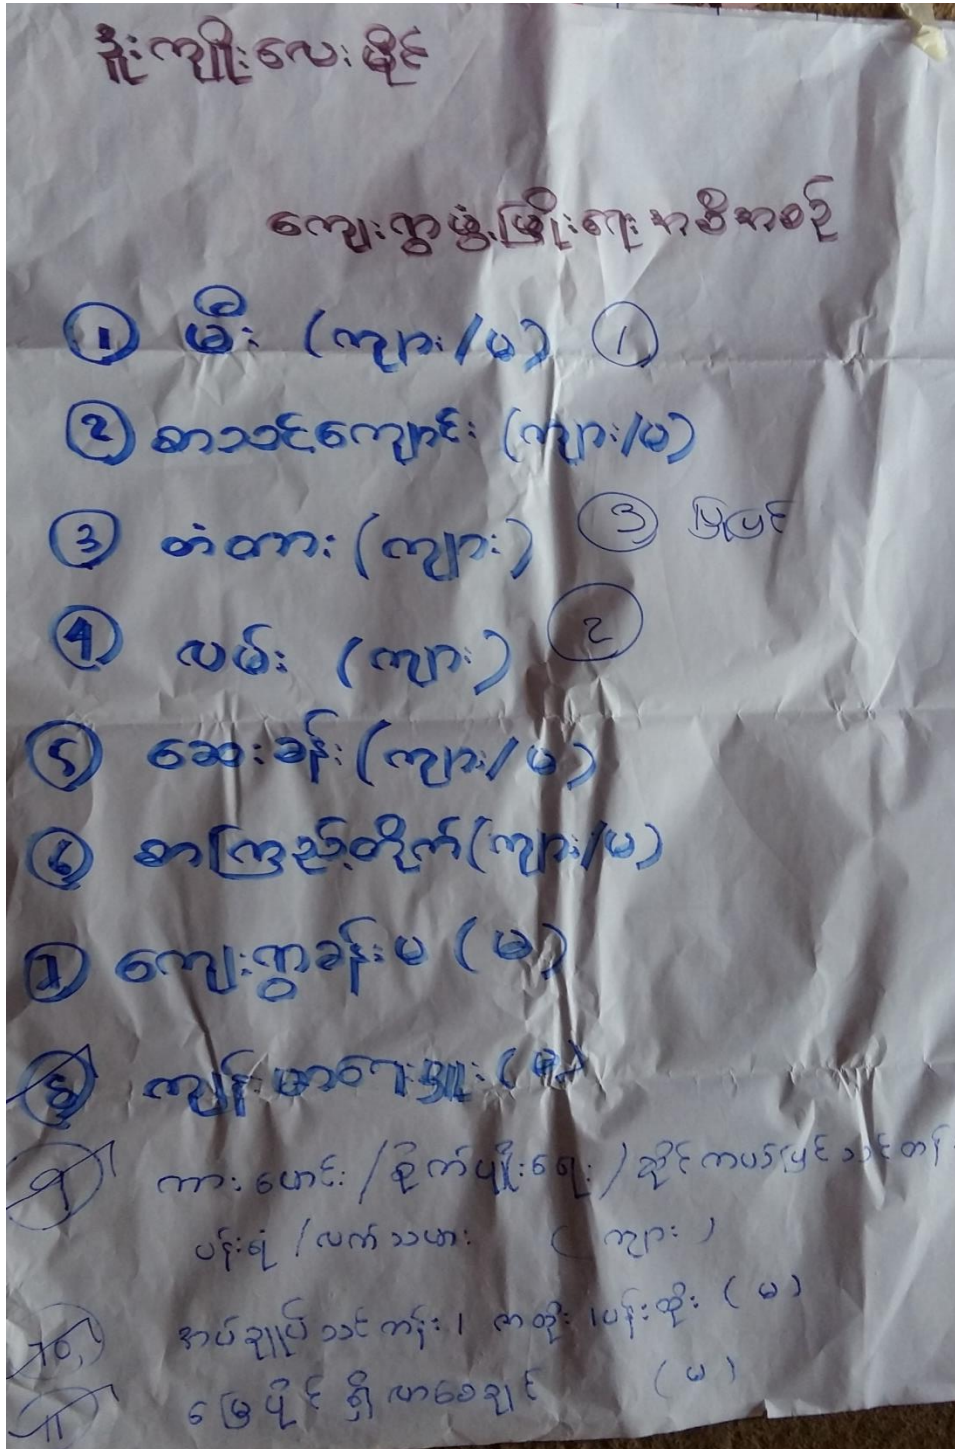 ဒူးကျိုးလေးမိုင်
ကျေးရွာဖွံ့ဖြိုးရေးအစီအစဉ်
① မီး (ကျား/မ) ①
② စာသင်ကျောင်း (ကျား/မ)
③ တံတား (ကျား) ③ မြို့ပြင်
④ လမ်း (ကျား) ②
⑤ ဆေးခန်း (ကျား/မ)
⑥ စာကြည့်တိုက် (ကျား/မ)
⑦ ကျေးရွာခန်းမ (မ)
⑧ ကျန်းမာရေးမှူး (မ)
⑨ ကားမောင်း / စိုက်ပျိုးရေး / ဆိုင်ကယ်ပြင်သင်တန်း
ပန်းရံ / လက်သမား (ကျား)
10, အပ်ချုပ်သင်တန်း၊ ဇာထိုး၊ ပန်းထိုး (မ)
11 မြေပိုင်ရှိလာစေချင် (မ)